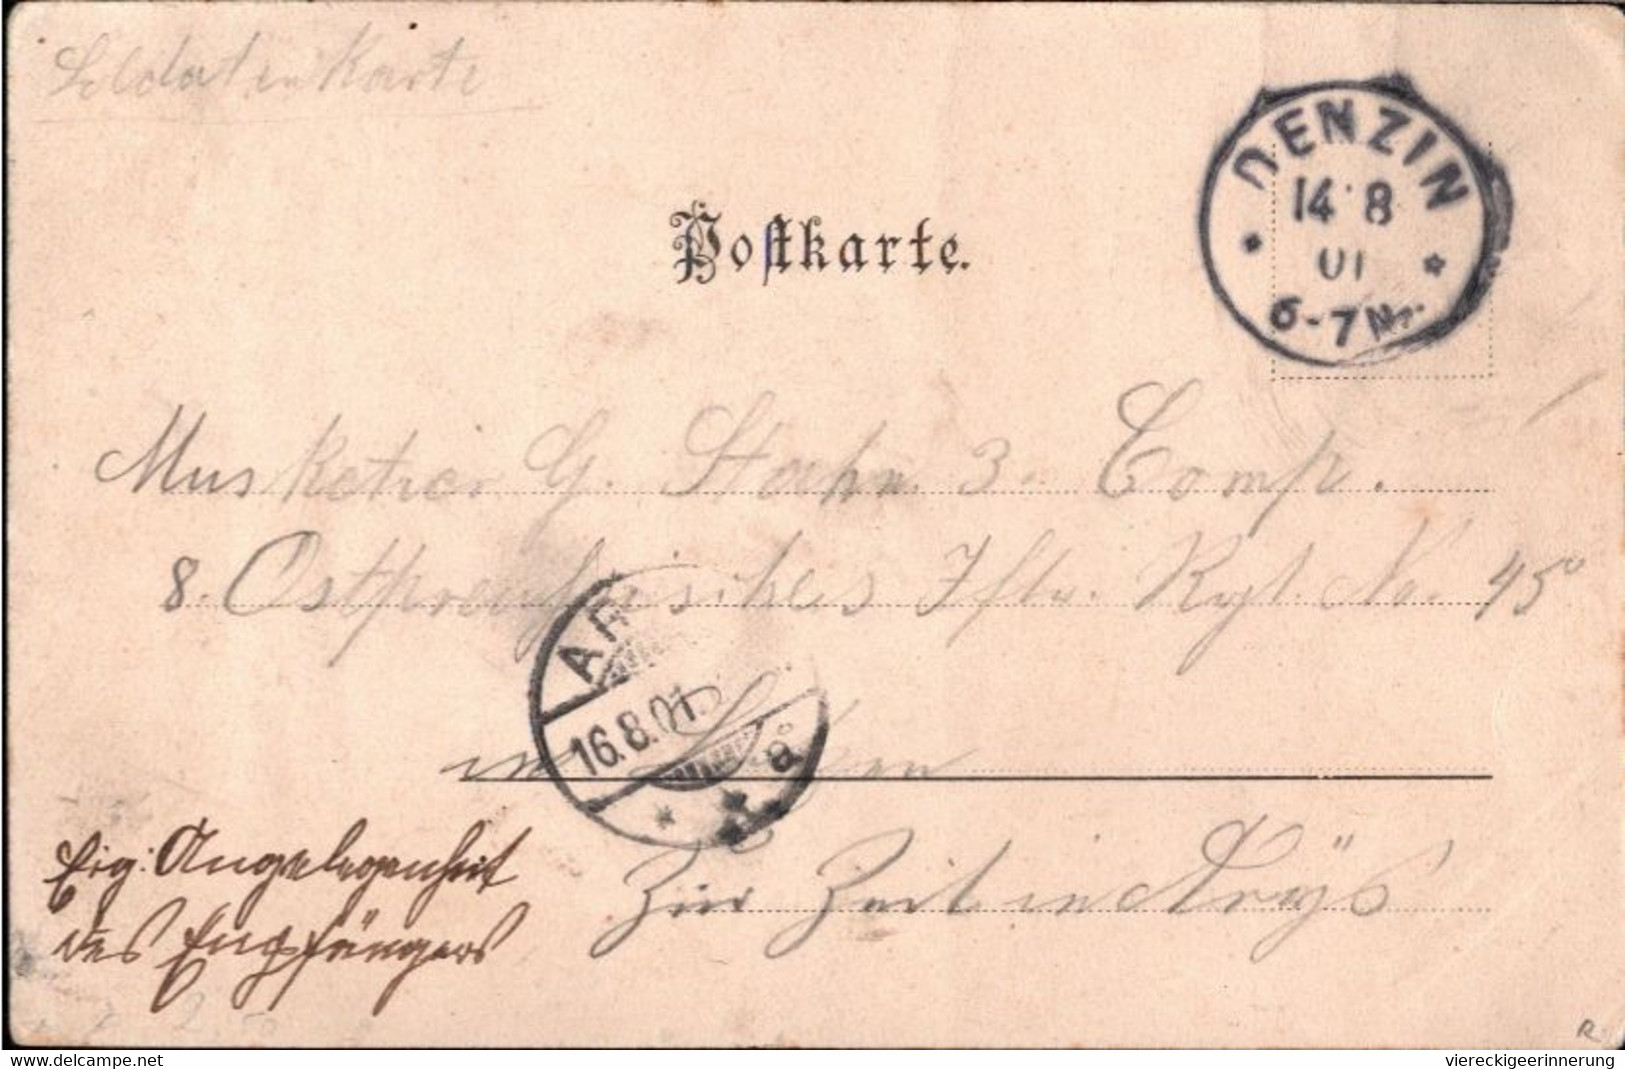 Soldaten Karte
DENZIN
14 8
01
6-7N.
Postkarte.
Musketier G. Stahn 3. Comp.
8. Ostpreußisches Iftr. Rgt. No. 45
AR
16.8.01
a.
in
Zur Zeit in Arys
Eig. Angelegenheit
des Empfängers
R
delcampe.net
viereckigeerinnerung